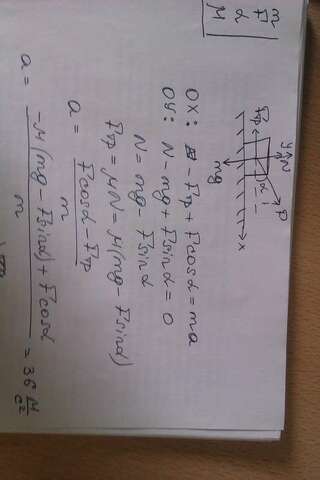 m
F
α
μ
y N
F
α
Fтр
x
mg
OX: -Fтр + Fcosα = ma
OY: N - mg + Fsinα = 0
N = mg - Fsinα
Fтр = μN = μ(mg - Fsinα)
a = (Fcosα - Fтр) / m
a = (-μ(mg - Fsinα) + Fcosα) / m = 36 м/с²